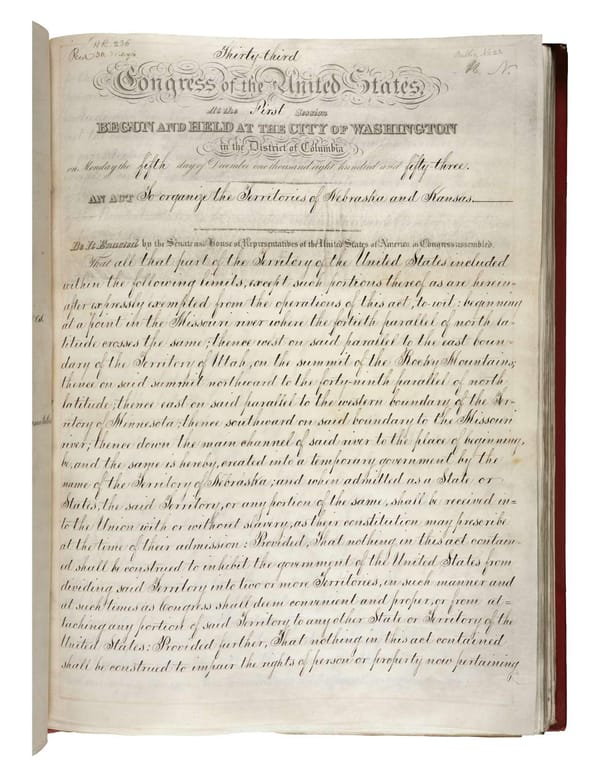 H.R. 236
Thirty-third
Congress of the United States,
At the First Session
BEGUN AND HELD AT THE CITY OF WASHINGTON
in the District of Columbia
on Monday the fifth day of December one thousand eight hundred and fifty-three.
AN ACT To organize the Territories of Nebraska and Kansas.
Be It Enacted by the Senate and House of Representatives of the United States of America in Congress assembled.
That all that part of the Territory of the United States included
within the following limits, except such portions thereof as are herein-
after expressly exempted from the operations of this act, to wit: beginning
at a point in the Missouri river where the fortieth parallel of north la-
titude crosses the same; thence west on said parallel to the east boun-
dary of the Territory of Utah, on the summit of the Rocky Mountains;
thence on said summit northward to the forty-ninth parallel of north
latitude; thence east on said parallel to the western boundary of the Ter-
ritory of Minnesota; thence southward on said boundary to the Missouri
river; thence down the main channel of said river to the place of beginning,
be, and the same is hereby, created into a temporary government by the
name of the Territory of Nebraska; and when admitted as a State or
States, the said Territory, or any portion of the same, shall be received in-
to the Union with or without slavery, as their constitution may prescribe
at the time of their admission: Provided, That nothing in this act contain-
ed shall be construed to inhibit the government of the United States from
dividing said Territory into two or more Territories, in such manner and
at such times as Congress shall deem convenient and proper, or from at=
taching any portion of said Territory to any other State or Territory of the
United States: Provided further, That nothing in this act contained
shall be construed to impair the rights of person or property now pertaining